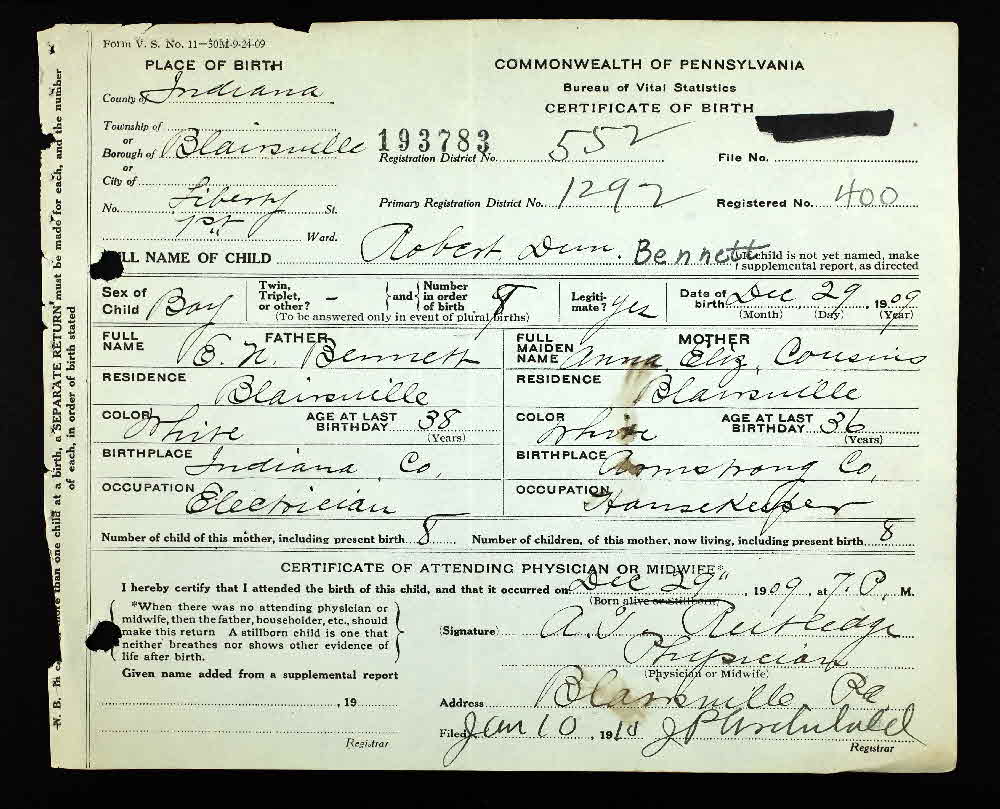 Form V. S. No. 11—50M-9-24-09
PLACE OF BIRTH
County of Indiana
Township of
or
Borough of Blairsville
or
City of
No. Liberty St.
1st Ward.
COMMONWEALTH OF PENNSYLVANIA
Bureau of Vital Statistics
CERTIFICATE OF BIRTH
193783
Registration District No. 552
File No.
Primary Registration District No. 1292
Registered No. 400
FULL NAME OF CHILD Robert Dunn. Bennett
If child is not yet named, make
supplemental report, as directed
Sex of Child Boy
Twin, Triplet, or other? –
and
Number in order of birth 8
(To be answered only in event of plural births)
Legiti-mate? Yes
Date of birth Dec 29, 1909
(Month) (Day) (Year)
FATHER
FULL NAME E. N. Bennett
MOTHER
FULL MAIDEN NAME Anna Eliz. Cousins
RESIDENCE Blairsville
RESIDENCE Blairsville
COLOR White AGE AT LAST BIRTHDAY 38 (Years)
COLOR White AGE AT LAST BIRTHDAY 36 (Years)
BIRTHPLACE Indiana Co.
BIRTHPLACE Armstrong Co,
OCCUPATION Electrician
OCCUPATION Housekeeper
Number of child of this mother, including present birth 8 Number of children, of this mother, now living, including present birth 8
CERTIFICATE OF ATTENDING PHYSICIAN OR MIDWIFE*
I hereby certify that I attended the birth of this child, and that it occurred on Dec 29", 1909, at 7. P. M.
(Born alive or Stillborn)
*When there was no attending physician or
midwife, then the father, householder, etc., should
make this return A stillborn child is one that
neither breathes nor shows other evidence of
life after birth.
(Signature) Rutledge
Physician
(Physician or Midwife)
Given name added from a supplemental report
, 19
Registrar
Address Blairsville Pa
Filed Jan 10, 1910 J P Archibald
Registrar
N. B. more than one child at a birth, a SEPARATE RETURN must be made for each, and the number
of each, in order of birth stated